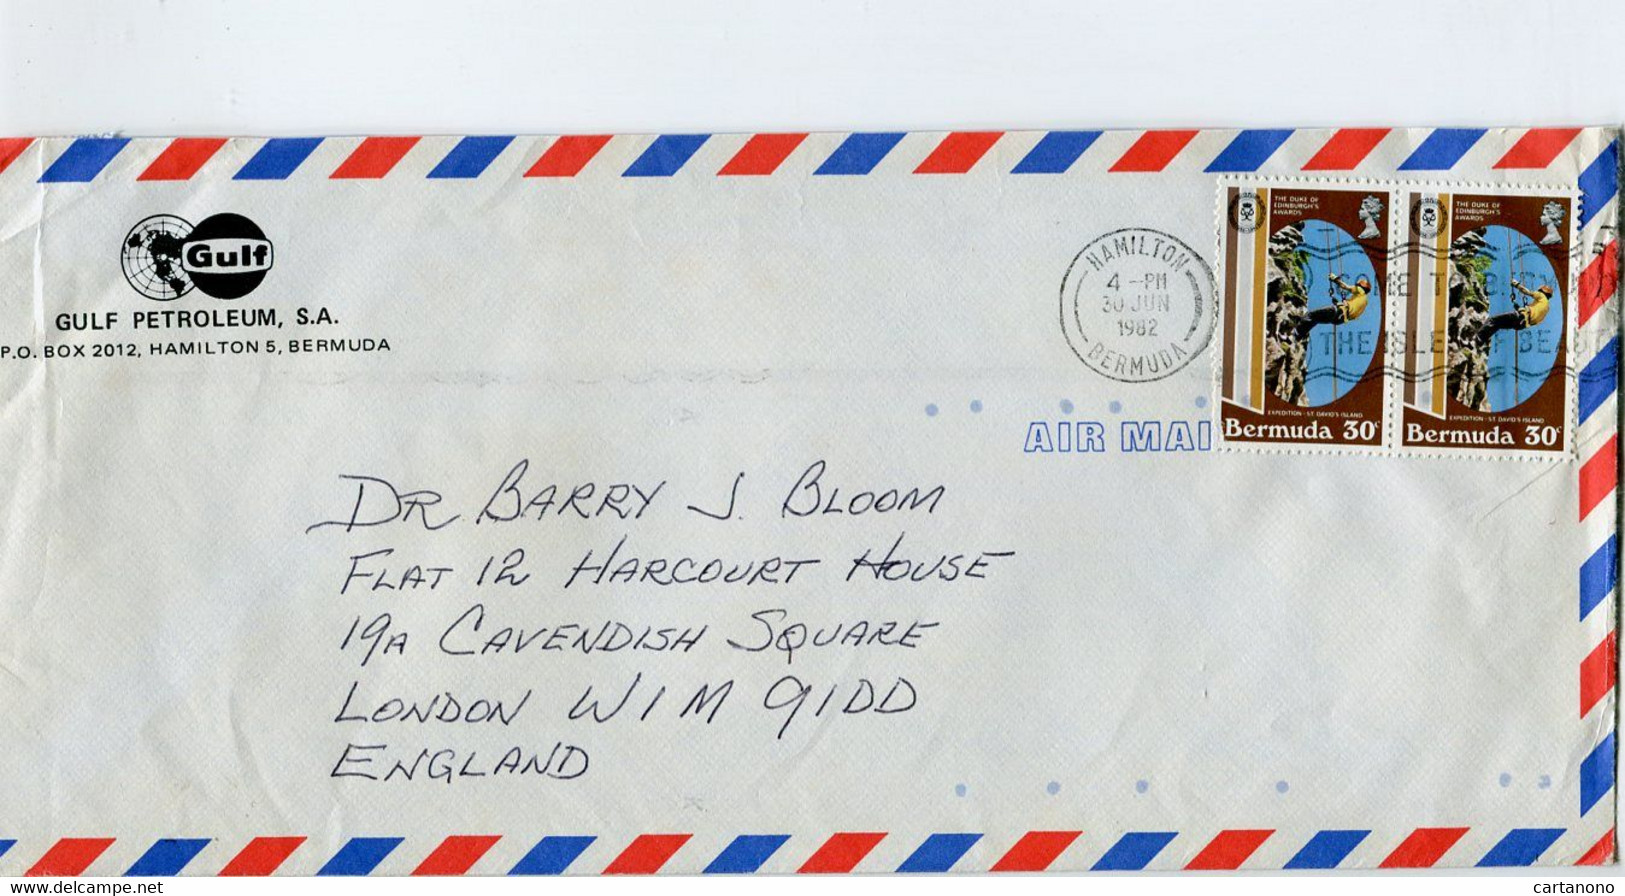 Gulf
GULF PETROLEUM, S.A.
P.O. BOX 2012, HAMILTON 5, BERMUDA
HAMILTON
4 - PM
30 JUN
1982
BERMUDA
THE DUKE OF
EDINBURGH'S
AWARDS
EXPEDITION - ST. DAVID'S ISLAND
Bermuda 30c
THE DUKE OF
EDINBURGH'S
AWARDS
EXPEDITION - ST. DAVID'S ISLAND
Bermuda 30c
THE ISLE OF BEAUT
AIR MAI
DR BARRY J. BLOOM
FLAT 12 HARCOURT HOUSE
19A CAVENDISH SQUARE
LONDON W1M 91DD
ENGLAND
www.delcampe.net
cartanono